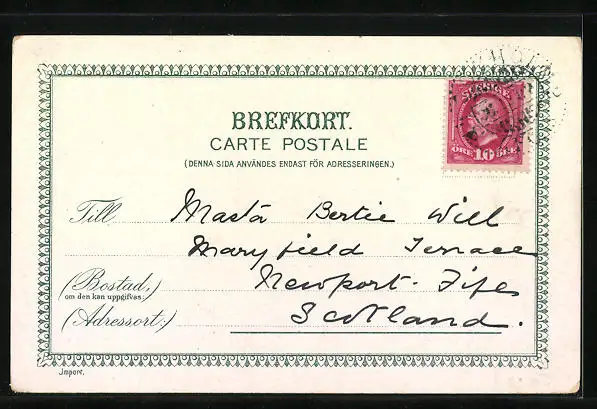 BREFKORT.
CARTE POSTALE
(DENNA SIDA ANVÄNDES ENDAST FÖR ADRESSERINGEN.)
SVERIGE
ÖRE 10 ÖRE
Till Masta Bertie Will
Maryfield Terrace
(Bostad,) Newport. Fife
om den kan uppgifvas:
(Adressort:) Scotland.
Import.